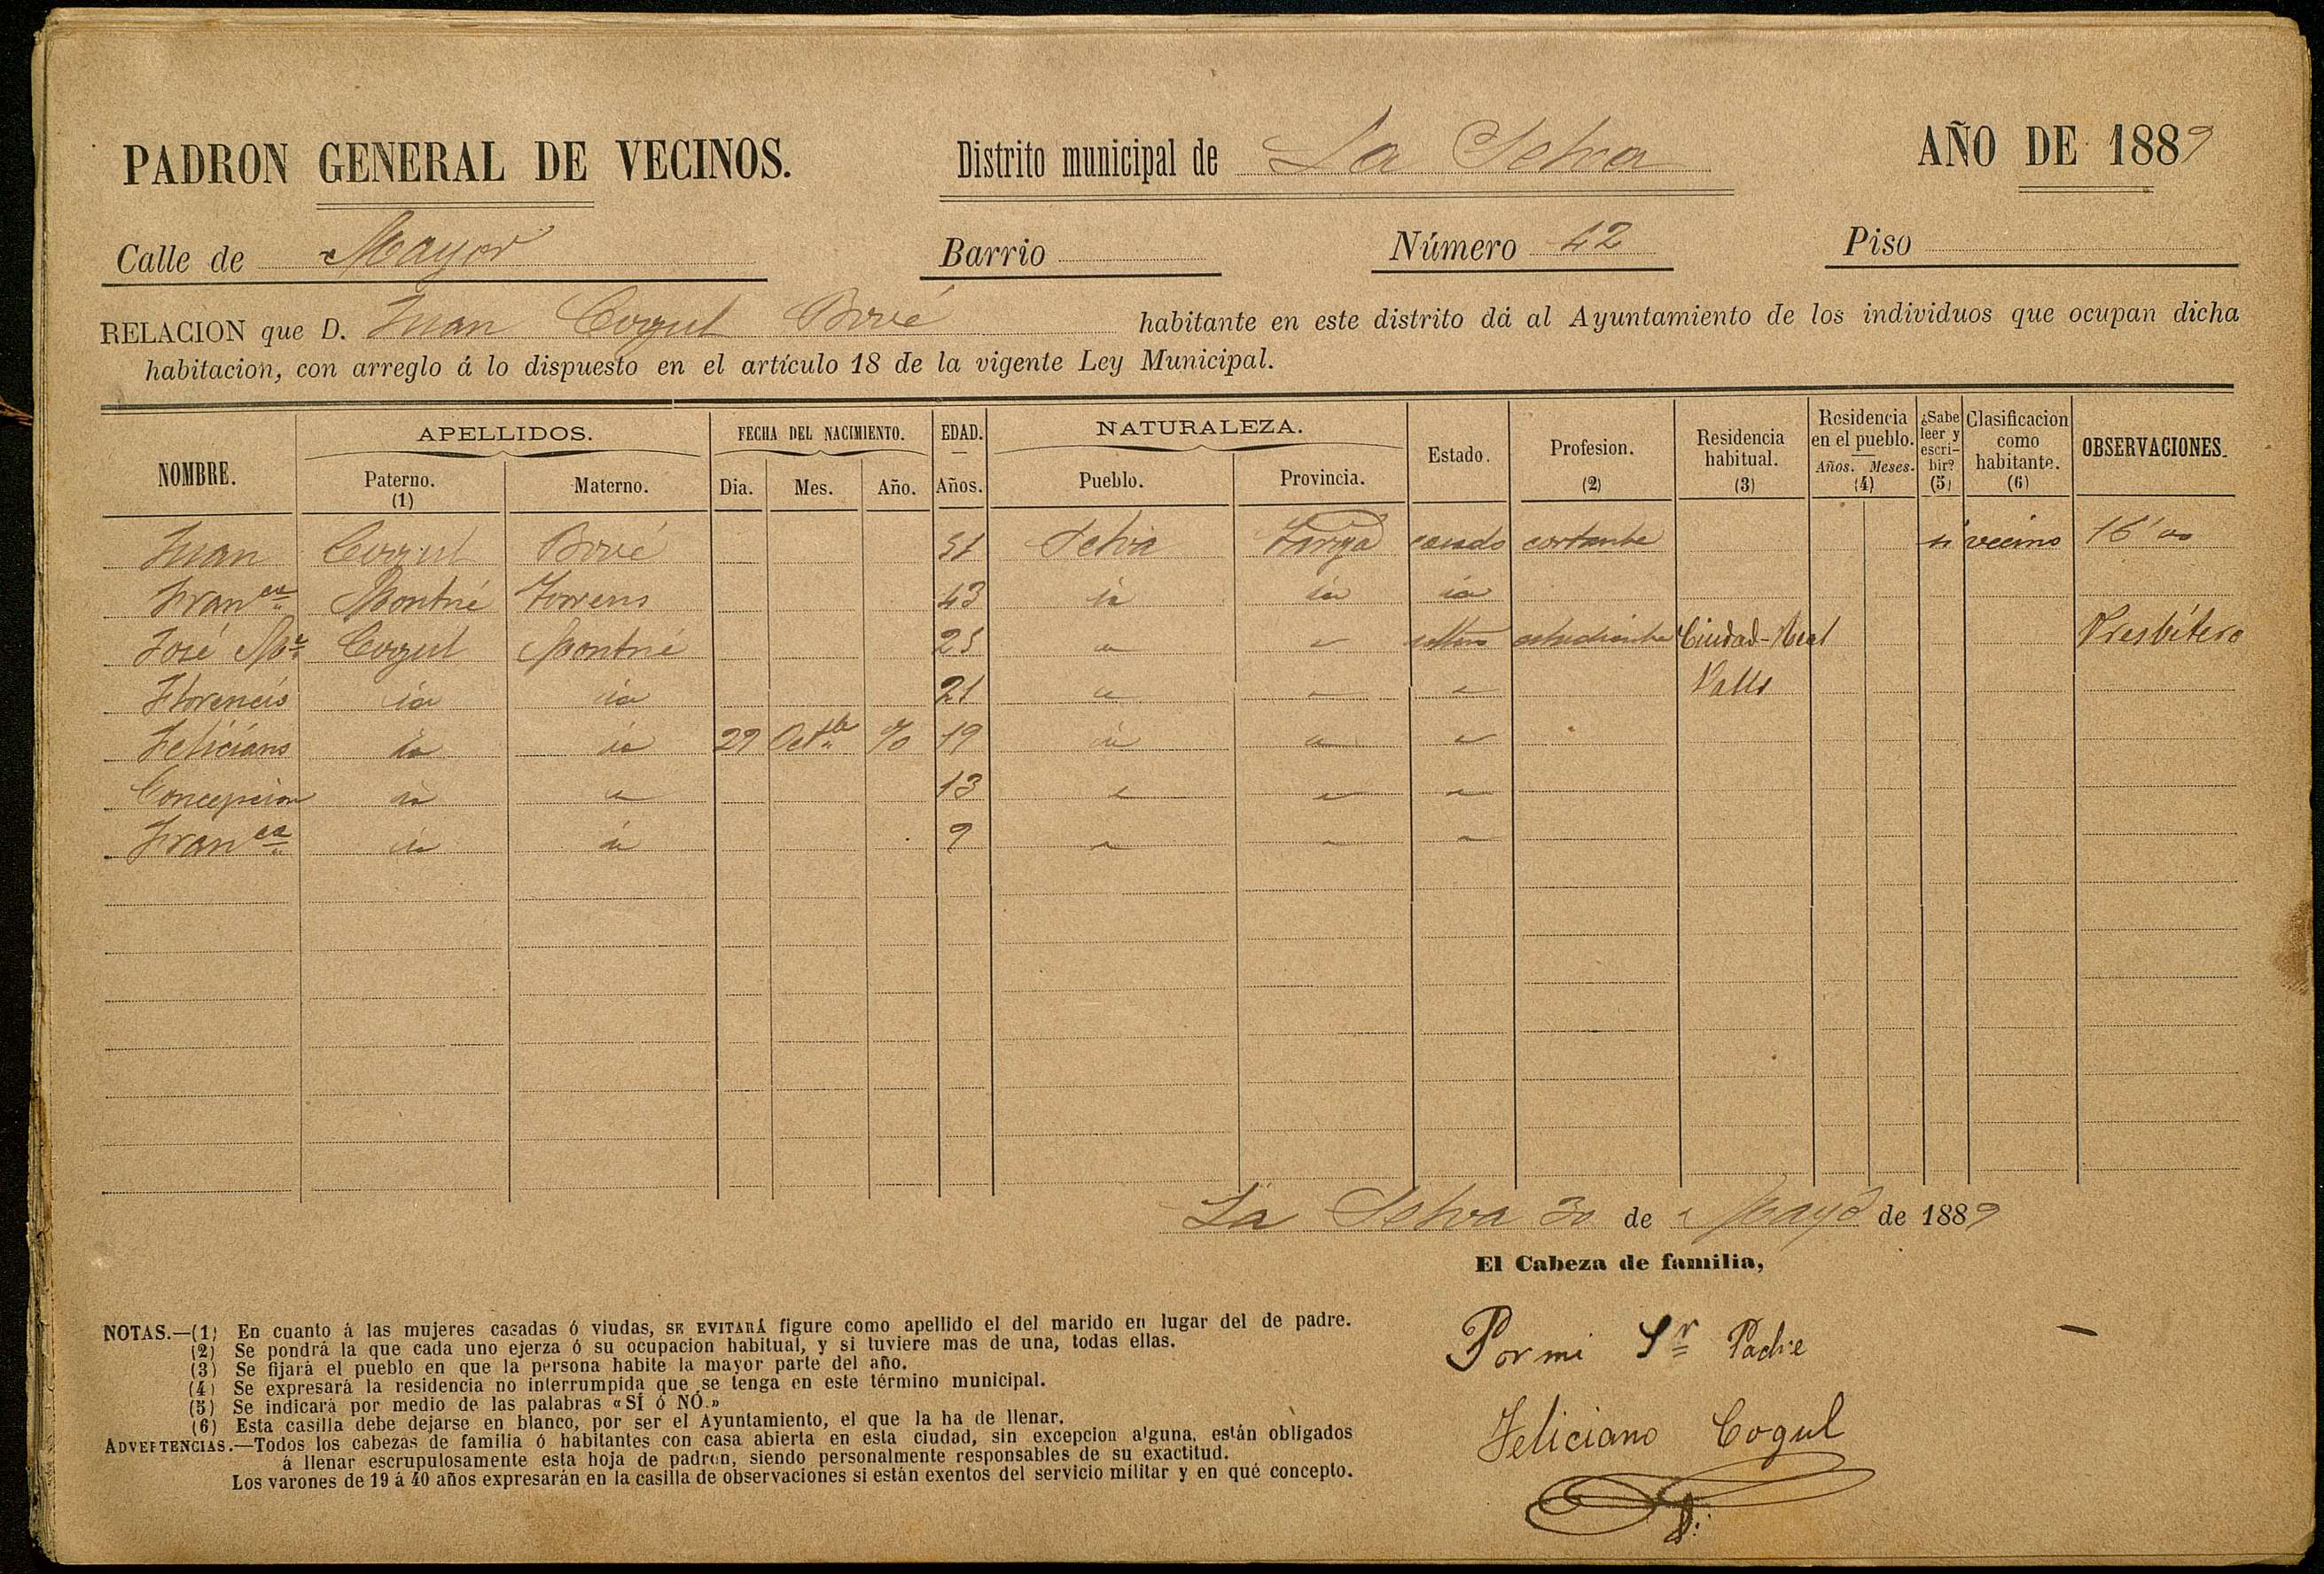 PADRON GENERAL DE VECINOS. Distrito municipal de La Selva AÑO DE 1889
Calle de Mayor Barrio Número 42 Piso
RELACION que D. Juan Cogul Bové habitante en este distrito dá al Ayuntamiento de los individuos que ocupan dicha
habitacion, con arreglo á lo dispuesto en el artículo 18 de la vigente Ley Municipal.
NOMBRE. APELLIDOS. Paterno. (1) Materno. FECHA DEL NACIMIENTO. Dia. Mes. Año. EDAD. Años. NATURALEZA. Pueblo. Provincia. Estado. Profesion. (2) Residencia habitual. (3) Residencia en el pueblo. Años. Meses. (4) ¿Sabe leer y escribir? (5) Clasificacion como habitante. (6) OBSERVACIONES.
Juan Cogul Bové 51 Selva casado cortante si vecino
Franca Montné Torrens 43 id id id
José Ma Cogul Montné 25 " " soltero estudiante Ciudad-Real Presbítero
Florencio id id 21 " " " Valls
Feliciano id id 29 Octbre 70 19 id " "
Concepcion id " 13 " " "
Franca id id 9 " " "
La Selva 30 de Mayo de 1889
El Cabeza de familia,
Por mi Sr Padre
Feliciano Cogul
NOTAS.—(1) En cuanto á las mujeres casadas ó viudas, SE EVITARÁ figure como apellido el del marido en lugar del de padre.
(2) Se pondrá la que cada uno ejerza ó su ocupacion habitual, y si tuviere mas de una, todas ellas.
(3) Se fijará el pueblo en que la persona habite la mayor parte del año.
(4) Se expresará la residencia no interrumpida que se tenga en este término municipal.
(5) Se indicará por medio de las palabras «SÍ ó NÓ.»
(6) Esta casilla debe dejarse en blanco, por ser el Ayuntamiento, el que la ha de llenar.
ADVERTENCIAS.—Todos los cabezas de familia ó habitantes con casa abierta en esta ciudad, sin excepcion alguna, están obligados
á llenar escrupulosamente esta hoja de padron, siendo personalmente responsables de su exactitud.
Los varones de 19 á 40 años expresarán en la casilla de observaciones si están exentos del servicio militar y en qué concepto.